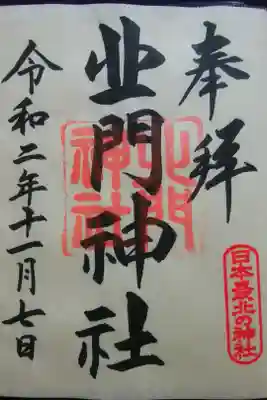 奉拝
日本最北の神社
北門神社
北門
神社
令和二年十一月七日